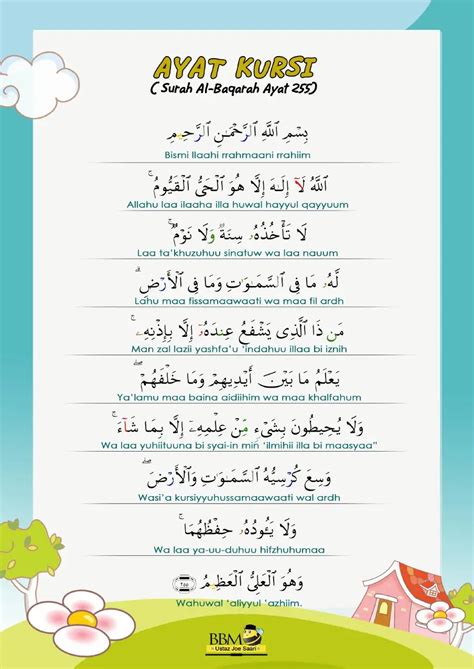 AYAT KURSI
( Surah Al-Baqarah Ayat 255)
بِسْمِ ٱللَّهِ ٱلرَّحْمَـٰنِ ٱلرَّحِيمِ
Bismi llaahi rrahmaani rrahiim
ٱللَّهُ لَآ إِلَـٰهَ إِلَّا هُوَ ٱلْحَىُّ ٱلْقَيُّومُ ۚ
Allahu laa ilaaha illa huwal hayyul qayyuum
لَا تَأْخُذُهُۥ سِنَةٌ وَلَا نَوْمٌ ۚ
Laa ta'khuzuhuu sinatuw wa laa nauum
لَّهُۥ مَا فِى ٱلسَّمَـٰوَٰتِ وَمَا فِى ٱلْأَرْضِ ۗ
Lahu maa fissamaawaati wa maa fil ardh
مَن ذَا ٱلَّذِى يَشْفَعُ عِندَهُۥٓ إِلَّا بِإِذْنِهِۦ ۚ
Man zal lazii yashfa'u 'indahuu illaa bi iznih
يَعْلَمُ مَا بَيْنَ أَيْدِيهِمْ وَمَا خَلْفَهُمْ ۖ
Ya'lamu maa baina aidiihim wa maa khalfahum
وَلَا يُحِيطُونَ بِشَىْءٍ مِّنْ عِلْمِهِۦٓ إِلَّا بِمَا شَآءَ ۚ
Wa laa yuhiituuna bi syai-in min 'ilmihii illa bi maasyaa"
وَسِعَ كُرْسِيُّهُ ٱلسَّمَـٰوَٰتِ وَٱلْأَرْضَ ۖ
Wasi'a kursiyyuhussamaawaati wal ardh
وَلَا يَـُٔودُهُۥ حِفْظُهُمَا ۚ
Wa laa ya-uu-duhuu hifzhuhumaa
وَهُوَ ٱلْعَلِىُّ ٱلْعَظِيمُ ٢٥٥
Wahuwal 'aliyyul 'azhiim.
BBM
Ustaz Joe Saari